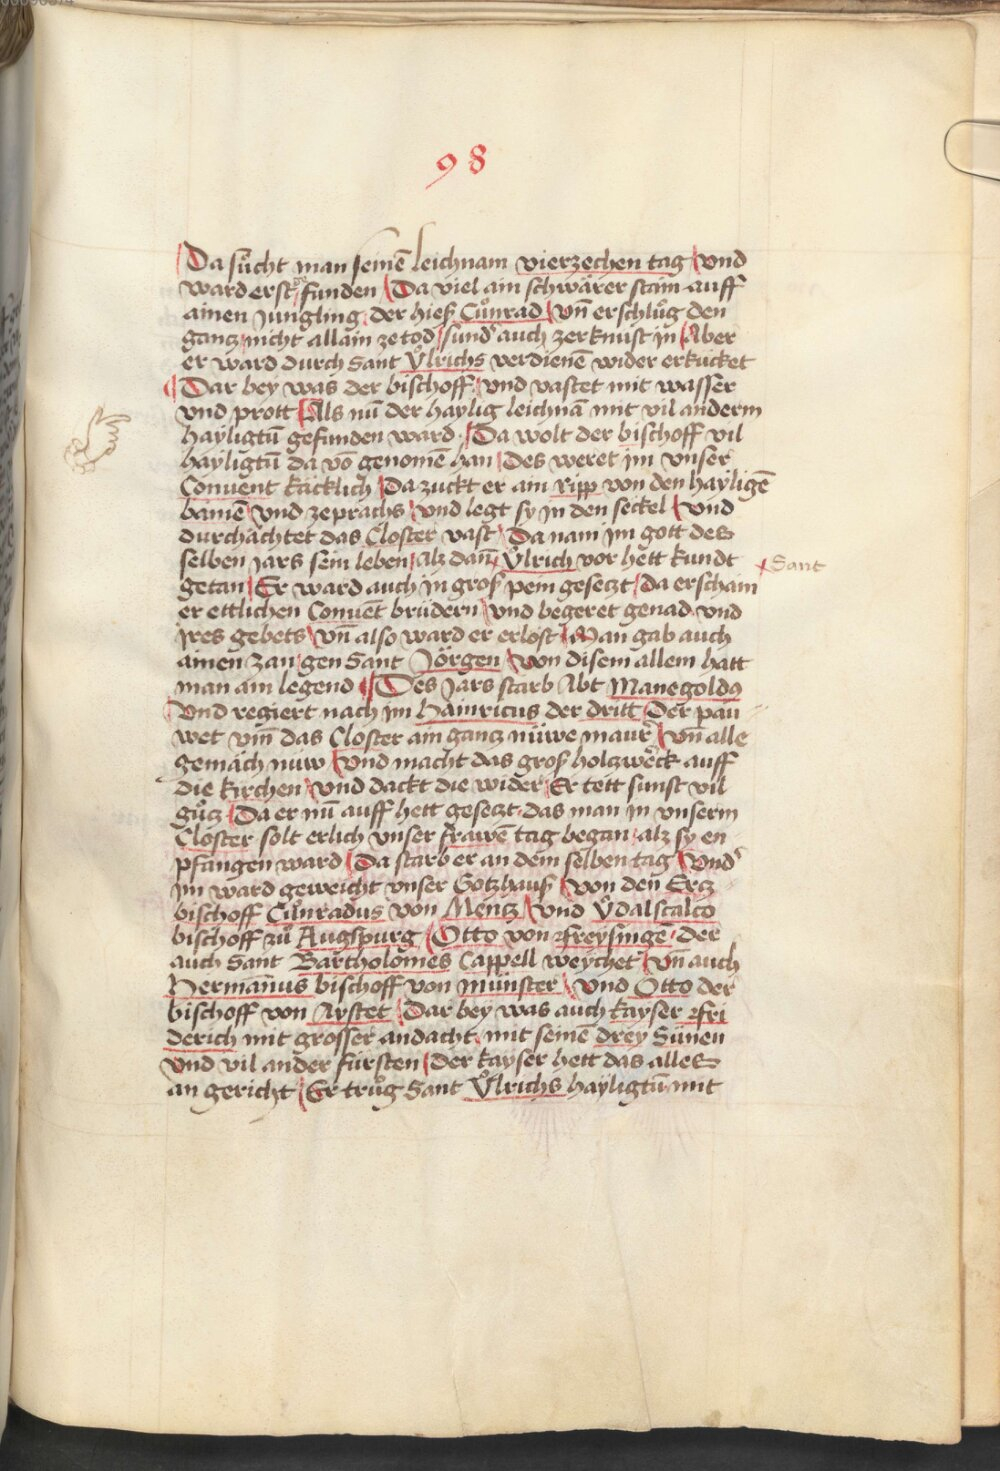 98
Da sůcht man seinē leichnam vierzechen tag vnd
ward erst funden Da viel ain schwärer stain auff
ainen Jungling der hieß Cůnrad vn̄ erschlůg den
gantz nicht allain ze tod sund' auch zerknust in Aber
er ward durch Sant Ůlrichs verdienē wider erkücket
Dar bey was der bischoff vnd vastet mit wasser
vnd prott Als nū der haylig leichnā mit vil anderm
hayligtū gefunden ward Da wolt der bischoff vil
hayligtū da vō genomē han Des weret jm vnser
Conuent käcklich Da zuckt er ain ripp von den hayligē
bainē vnd zeprachs vnd legt sy jn den seckel vnd
durchächtet das Closter vast Da nam jm gott des
selben jars sein leben Alz dan̄ Ůlrich vor hett kundt
Sant
getan Er ward auch jn groß pein gesetzt da erschain
er ettlichen Conuēt brüdern vnd begeret genad vnd
jres gebets vn̄ also ward er erlöst Man gab auch
ainen zan gen Sant Jörgen Von disem allem hatt
man ain legend Des Jars starb Abt Manegoldꝰ
Vnd regiert nach jm Hainricus der dritt Der pau
wet vm̄ das Closter ain gantz nüwe maur vn̄ alle
gemäch nuw Vnd macht das groß holtzwerck auff
die kirchen vnd dackt die wider Er tett sunst vil
gůtz Da er nū auff hett gesetzt das man jn vnserm
Closter solt erlich vnser frawē tag began alz sy en
pfangen ward Da starb er an dem selben tag Vnd'
jm ward geweicht vnser Gotzhauß von den Ertz
bischoff Cůnradus von Mentz Vnd Ůdalscalco
bischoff zů Augspurg Otto von Freysingē der
auch Sant Bartholomes Cappell weychet Vn̄ auch
Hermanus bischoff von münster Vnd Otto der
bischoff von Aystet Dar bey was auch kayser Fri
derich mit grosser andacht mit seinē drey Sünen
vnd vil ander fürsten der kayser hett das alles
an gericht Er trůg Sant Ůlrichs hayligtū mit